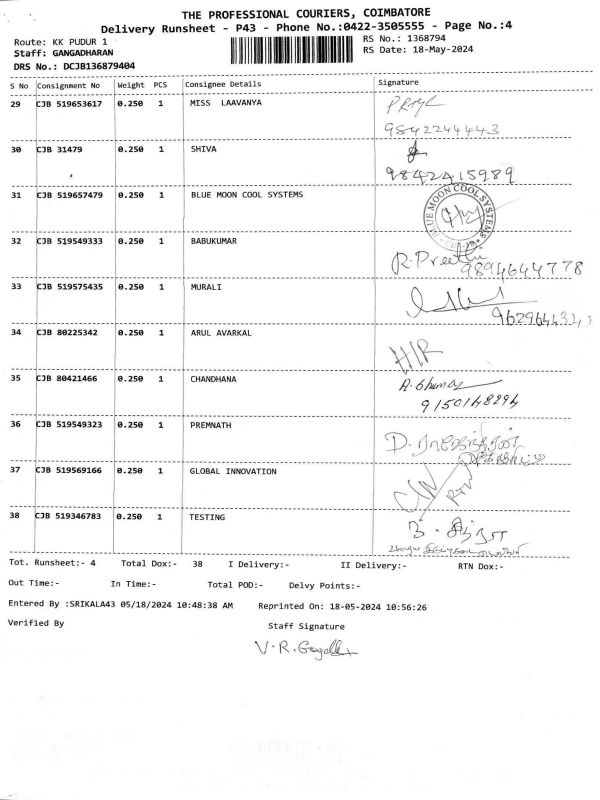 THE PROFESSIONAL COURIERS, COIMBATORE
Delivery Runsheet - P43 - Phone No.:0422-3505555 - Page No.:4
Route: KK PUDUR 1
RS No.: 1368794
Staff: GANGADHARAN
RS Date: 18-May-2024
DRS No.: DCJB136879404
S No Consignment No Weight PCS Consignee Details Signature
29 CJB 519653617 0.250 1 MISS LAAVANYA
9842244443
30 CJB 31479 0.250 1 SHIVA
9842415989
31 CJB 519657479 0.250 1 BLUE MOON COOL SYSTEMS
BLUE MOON COOL SYSTEMS
32 CJB 519549333 0.250 1 BABUKUMAR
R.Preethi 9894644778
33 CJB 519575435 0.250 1 MURALI
34 CJB 80225342 0.250 1 ARUL AVARKAL
H/R
35 CJB 80421466 0.250 1 CHANDHANA
9150148294
36 CJB 519549323 0.250 1 PREMNATH
37 CJB 519569166 0.250 1 GLOBAL INNOVATION
RTN
38 CJB 519346783 0.250 1 TESTING
Tot. Runsheet:- 4 Total Dox:- 38 I Delivery:- II Delivery:- RTN Dox:-
Out Time:- In Time:- Total POD:- Delvy Points:-
Entered By :SRIKALA43 05/18/2024 10:48:38 AM Reprinted On: 18-05-2024 10:56:26
Verified By Staff Signature